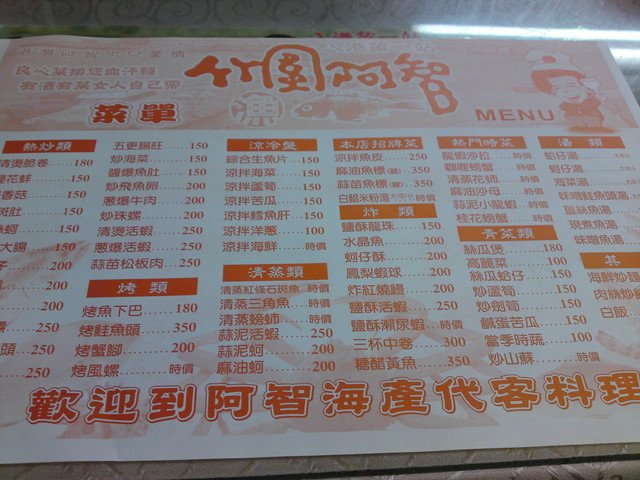 入港第一站
良心菜柳逕血汗錢
有酒有菜女人自己帶
竹圍阿智
漁
菜單
MENU
熱炒類
清燙脆卷 180
香菇
大腸
五更腸旺 150
炒海菜 150
醬爆魚肚 150
炒飛魚卵 200
蔥爆牛肉 200
炒珠螺 200
清燙活蝦 250
蔥爆活蝦 250
蒜苗松板肉 250
烤類
烤魚下巴 180
烤鮭魚頭 350
烤蟹腳 200
烤風螺 時價
涼冷盤
綜合生魚片 150
涼拌海菜 150
涼拌蘆筍 150
涼拌苦瓜 150
涼拌鱈魚肝 150
涼拌洋蔥 100
涼拌海鮮 時價
清蒸類
清蒸紅條石斑魚 時價
清蒸三角魚 時價
清蒸螃蟳 時價
蒜泥活蝦 250
蒜泥蚵 200
麻油蚵 200
本店招牌菜
涼拌魚皮 250
麻油魚標 350
蒜苗魚標 350
白鯧米粉湯
炸類
鹽酥龍珠 150
水晶魚 200
蚵仔酥 200
鳳梨蝦球 200
炸紅燒鰻 200
鹽酥活蝦 250
鹽酥瀨尿蝦 時價
三杯中卷 300
糖醋黃魚 350
熱門時菜
龍蝦沙拉 時價
咖哩螃蟹 時價
清蒸花蟳 時價
麻油沙母 時價
蒜泥小龍蝦 時價
桂花螃蟹 時價
青菜類
絲瓜煲 180
高麗菜 100
絲瓜蛤仔 150
炒蘆筍 150
炒劍筍 150
鹹蛋苦瓜 150
當季時蔬 100
炒山蘇 時價
湯類
蛤仔湯
蚵仔湯
海菜湯
味噌鮭魚頭湯
現煮魚湯
味噌魚湯
其
海鮮炒麵
肉絲炒
白飯
歡迎到阿智海產代客料理